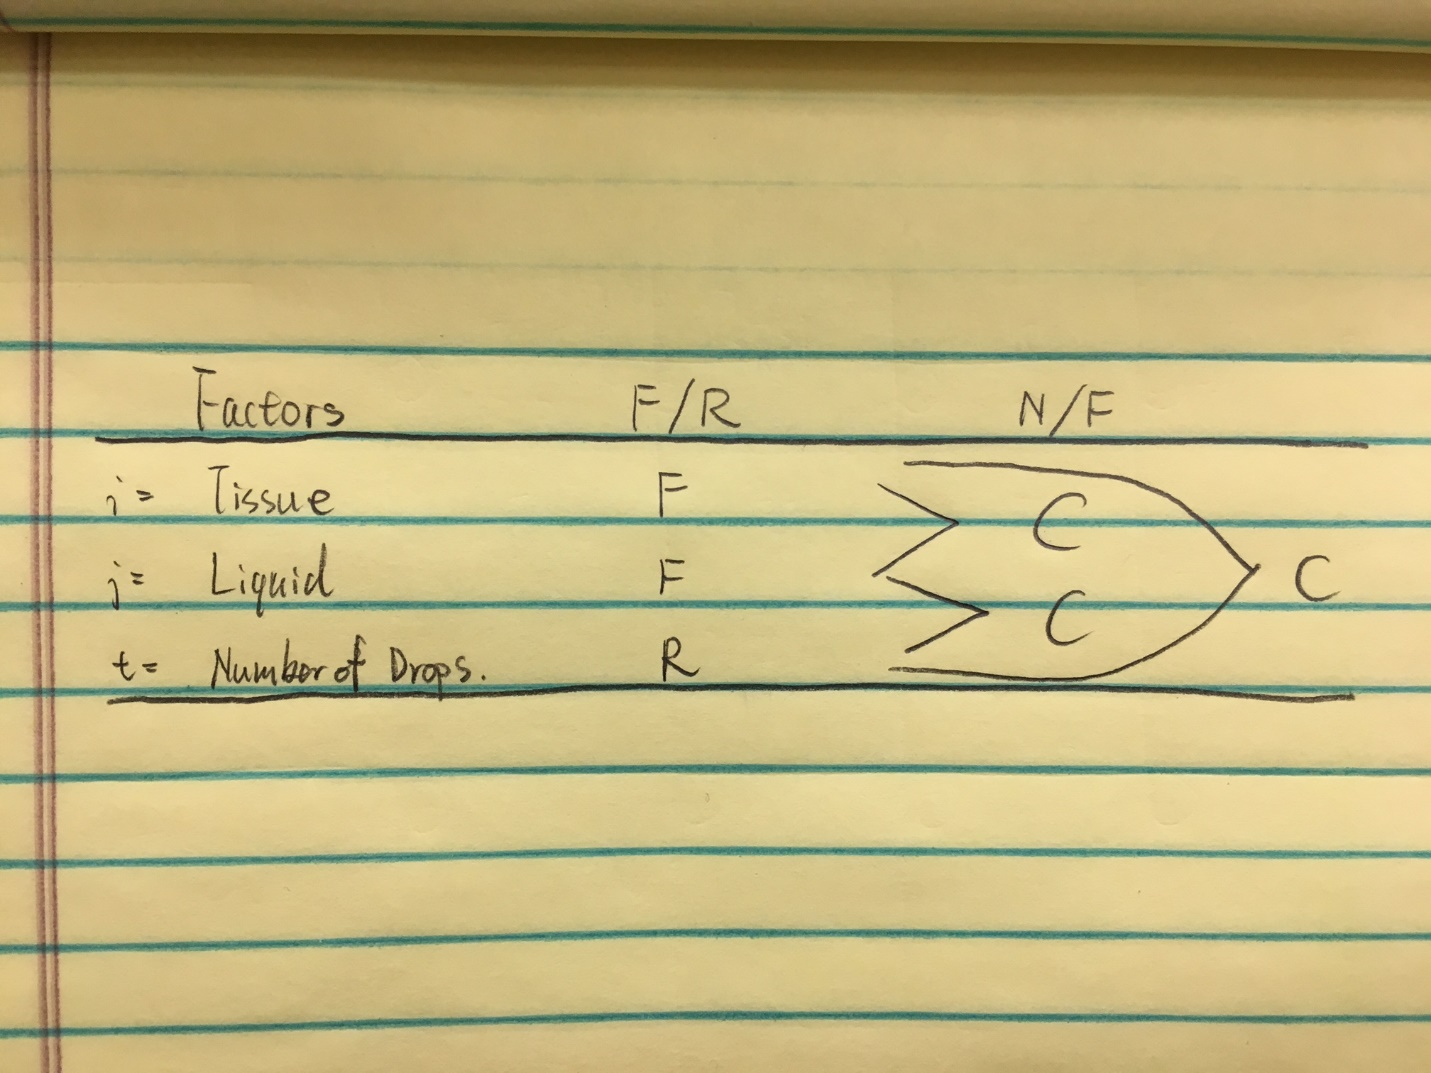 Factors F/R N/F
i = Tissue F C
j = Liquid F C
C
t = Number of Drops. R